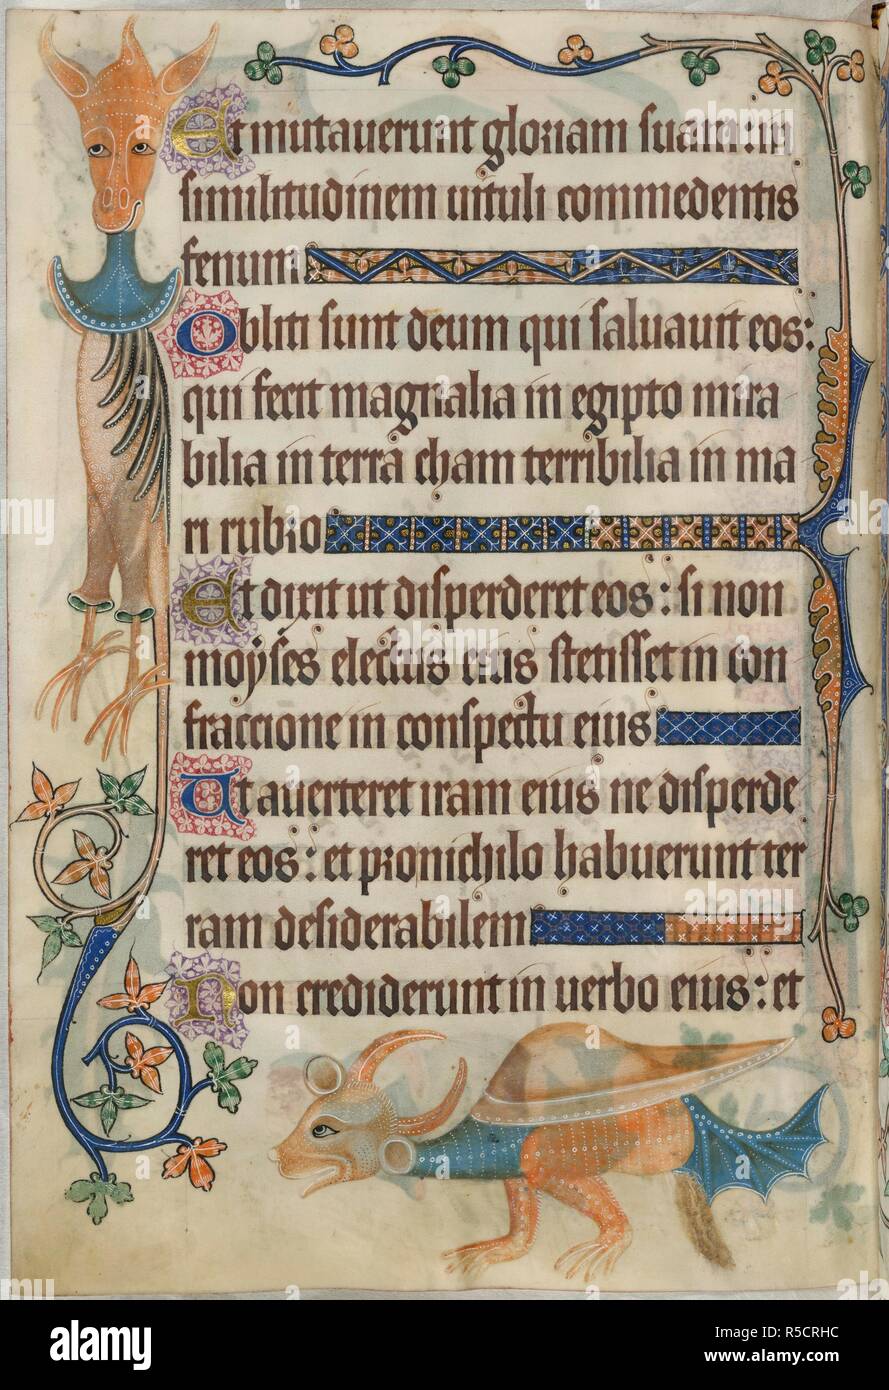 Et mutauerunt gloriam suam: in
similitudinem uituli commedentis
fenum
Obliti sunt deum qui saluauit eos:
qui fecit magnalia in egipto mira
bilia in terra cham terribilia in ma
ri rubro
Et dixit ut disperderet eos: si non
moyses electus eius stetisset in con
fraccione in conspectu eius
Ut auerteret iram eius ne disperde
ret eos: et pro nichilo habuerunt ter
ram desiderabilem
Non crediderunt in uerbo eius: et
alamy
Image ID: R5CRHC
www.alamy.com